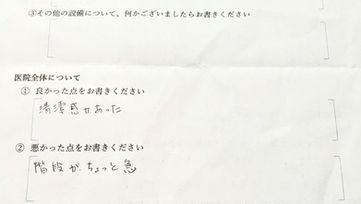 ③その他の設備について、何かございましたらお書きください
医院全体について
① 良かった点をお書きください
清潔感があった
② 悪かった点をお書きください
階段が、ちょっと急